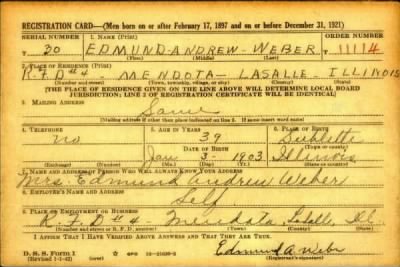 REGISTRATION CARD—(Men born on or after February 17, 1897 and on or before December 31, 1921)
SERIAL NUMBER 1. NAME (Print) ORDER NUMBER
30 EDMUND-ANDREW-WEBER 11114
2. PLACE OF RESIDENCE (Print)
R.F.D #4 - MENDOTA - LASALLE - ILLINOIS
(Number and street) (Town, township, village, or city) (County) (State)
[THE PLACE OF RESIDENCE GIVEN ON THE LINE ABOVE WILL DETERMINE LOCAL BOARD
JURISDICTION; LINE 2 OF REGISTRATION CERTIFICATE WILL BE IDENTICAL]
3. MAILING ADDRESS
Same
[Mailing address if other than place indicated on line 2. If same insert word same]
4. TELEPHONE 5. AGE IN YEARS 6. PLACE OF BIRTH
no 39 Sublette
DATE OF BIRTH
Jan 3 - 1903 Illinois
(Exchange) (Number) (Mo.) (Day) (Yr.) (State or country)
7. NAME AND ADDRESS OF PERSON WHO WILL ALWAYS KNOW YOUR ADDRESS
Mrs. Edmund Andrew Weber
8. EMPLOYER'S NAME AND ADDRESS
Self
9. PLACE OF EMPLOYMENT OR BUSINESS
R.F.D #4 - Mendota, Lasalle, Ill.
(Number and street or R. F. D. number) (Town) (County) (State)
I AFFIRM THAT I HAVE VERIFIED ABOVE ANSWERS AND THAT THEY ARE TRUE.
Edmund A Weber
D. S. S. Form 1
(Registrant's signature)